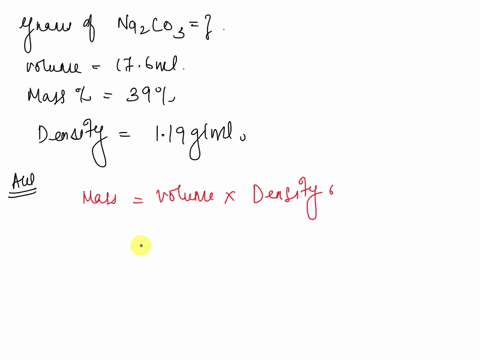 grams of Na2CO3 = ?.
volume = 17.6 ml.
Mass % = 39%,
Density = 1.19 g/ml,
Ans
Mass = volume x Density,